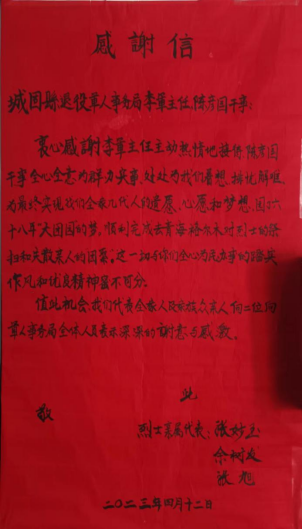 感謝信
城固縣退役軍人事务局李軍主任,陈彦国干事:
衷心感謝李軍主任主动热情地接待,陈彦国
干事全心全意为群力实事,处处为我们着想,排忧解难,
为最终实现我们全家几代人的遗愿、心愿和梦想,
十八年大团圆的梦,顺利完成去青海格尔木对烈士的祭
扫和失散家人的团聚,这一切与你们全心为民办事的踏实
作风和优良精神密不可分。
值此机会,我们代表全家人及家族众家人向二位向
軍人事务局全体人員表示深深的謝意与感激。
此
敬
烈士亲属代表:张妙玉
余树友
张旭
二〇二三年四月十二日